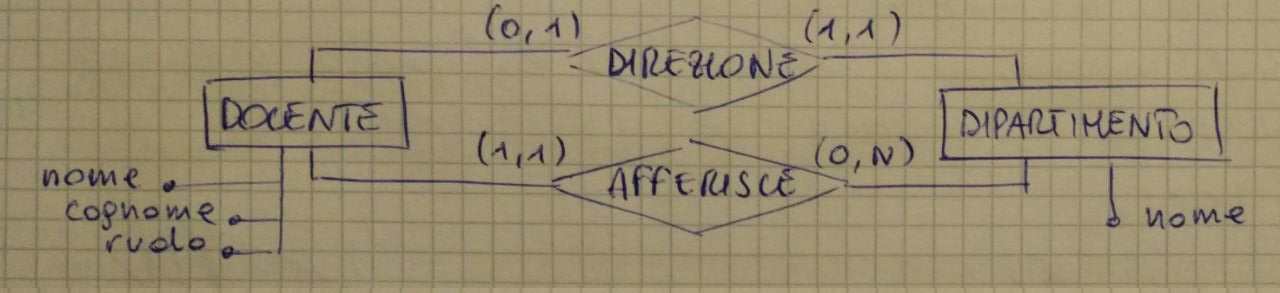 (0,1) DIREZIONE (1,1)
DOCENTE DIPARTIMENTO
(1,1) AFFERISCE (0,N)
nome
cognome
ruolo
nome